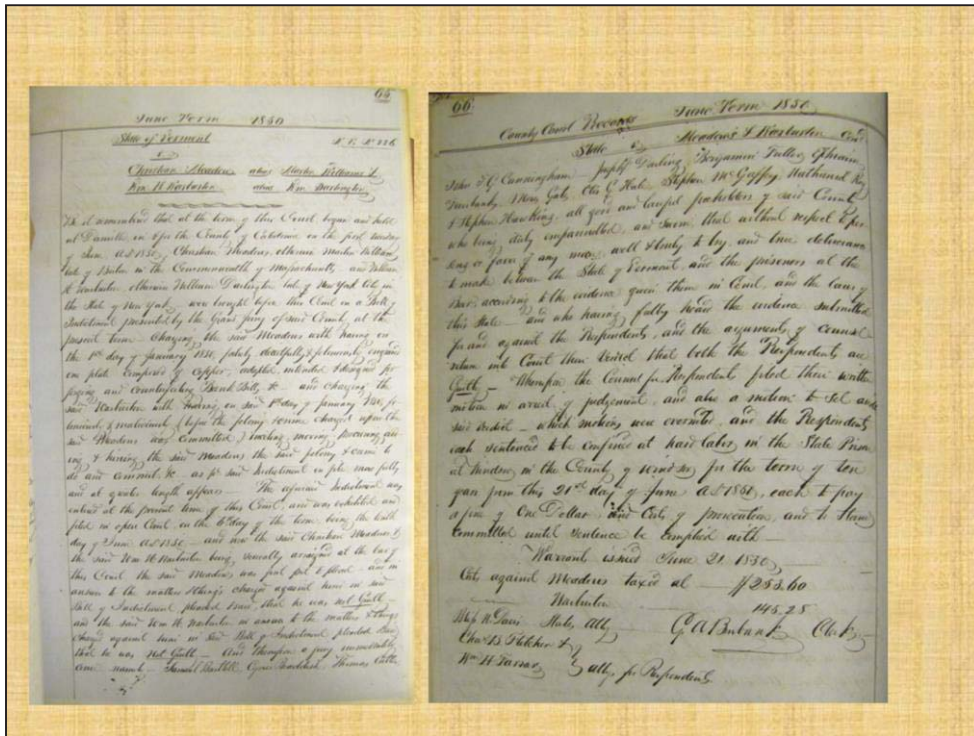 65
June Term 1850
State of Vermont
vs
Christian Meadows alias Martin Williams &
Wm H Warburton alias Wm Darlington
Be it remembered that at the term of this Court begun and held
at Danville in & for the County of Caledonia on the first Tuesday
of June AD 1850, Christian Meadows, otherwise Martin Williams,
late of Boston in the Commonwealth of Massachusetts, and William
H Warburton otherwise William Darlington late of New York City in
the State of New York, were brought before this Court on a Bill of
Indictment presented by the Grand Jury of said County at the
present term Charging the said Meadows with having on
the 1st day of January 1850, falsely deceitfully & feloniously engraved
one plate composed of Copper, adapted intended & designed for
forging and counterfeiting Bank Bills, &c - and charging the
said Warburton with having on said 1st day of January 1850,
& maliciously & before the felony charged upon the
said Meadows was committed, moving, procuring
& hiring the said Meadows the said felony & crime to
do and commit &c - as pr said Indictment on file more fully
and at greater length appears - The aforesaid Indictment was
entered at the present term of this Court, and was exhibited and
filed in open Court on the 6th day of the term being the tenth
day of June AD 1850 - and now the said Christian Meadows &
the said Wm H Warburton being severally arraigned at the bar of
this Court the said Meadows was first put to plead - and in
answer to the matters & things charged against him in said
Bill of Indictment, pleaded that he was not Guilty -
and the said Wm H Warburton in answer to the matters & things
charged against him in said Bill of Indictment pleaded
that he was Not Guilty - And thereupon a jury
came namely - Samuel Bartlett, Cyrus Thomas
66
County Court Records June Term 1850
State vs Meadows & Warburton
John T G Cunningham Joseph Darling Benjamin Fuller Ephraim
Moses Gates Otis G Hale Stephen McGaffey Nathaniel
& Stephen Hawkins, all good and lawful freeholders of said County
who being duly empannelled, and sworn, that without respect
or favor of any man, well & truly to try, and true deliverance
to make between the State of Vermont, and the prisoners at the
Bar, according to the evidence given them in Court, and the laws of
this State - and who having fully heard the evidence submitted
for and against the Respondents, and the arguments of counsel
return into Court their verdict that both the Respondents are
Guilty - Whereupon the Counsel for Respondents filed their written
motion in arrest of judgement, and also a motion to set aside
said verdict - which motions were overruled, and the Respondents
each sentenced to be confined at hard labor, in the State Prison
at Windsor, in the County of Windsor for the term of ten
years from this 21st day of June AD 1850, each to pay
a fine of One Dollar, and Costs of prosecution, and to stand
committed until sentence be complied with -
Warrant issued June 21 1850
Costs against Meadows taxed at $253.60
Warburton 145.28
N Davis States Atty G A Burbank Clerk
Chas B Fletcher &
Wm H
Attys for Respondents